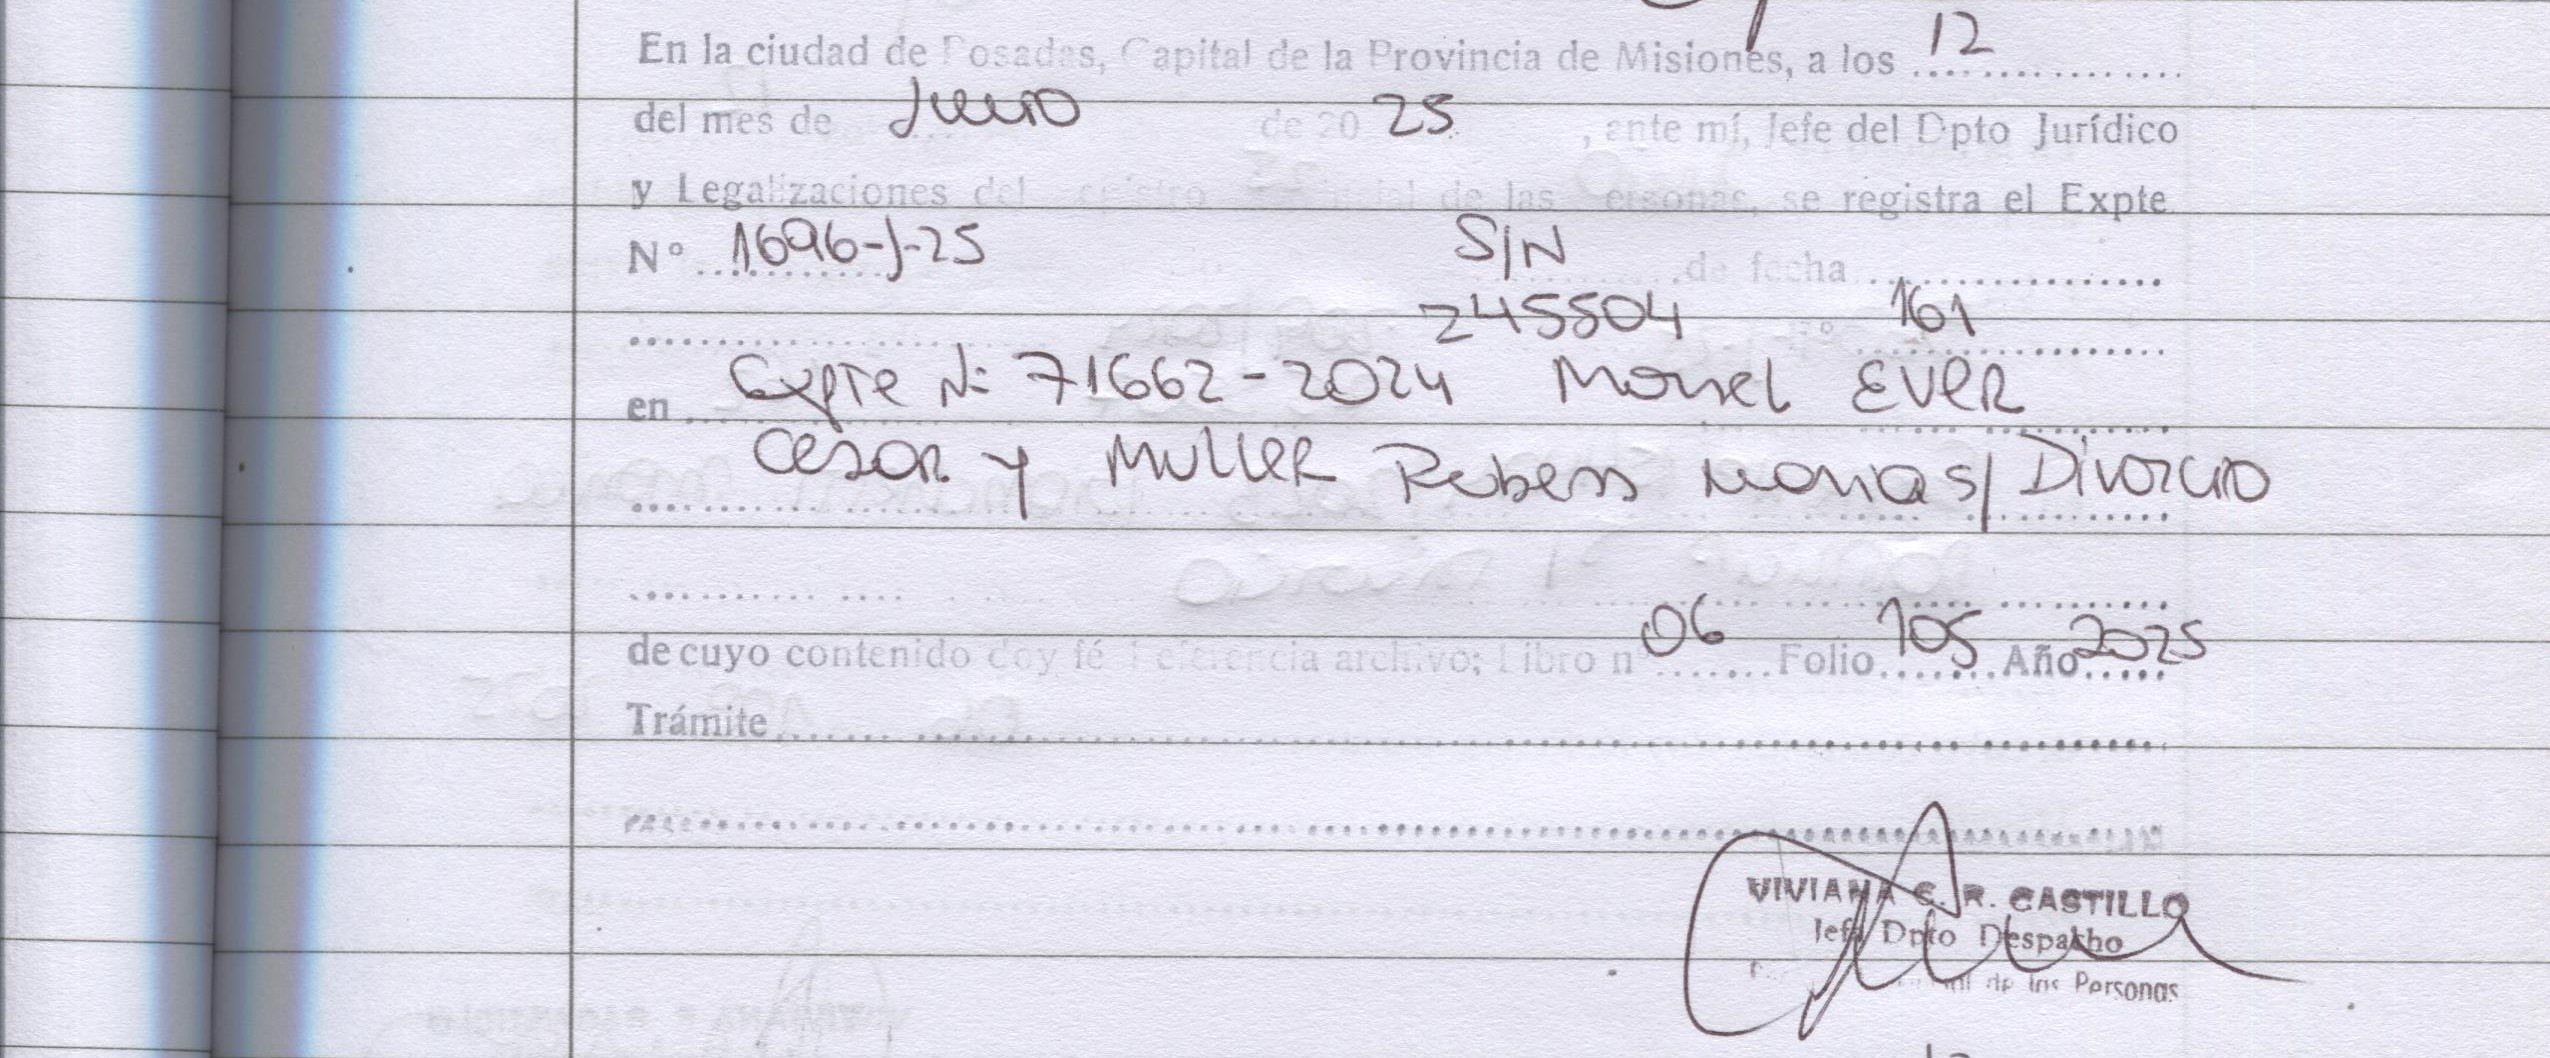 En la ciudad de Posadas, Capital de la Provincia de Misiones, a los 12
del mes de Junio de 2025, ante mí, Jefe del Dpto Jurídico
y Legalizaciones del de las Personas, se registra el Expte
Nº 1696-J-25 S/N de fecha
245504 161
en Expte N: 71662-2024 EVER
Cesar y MULLER Rubens s/ Divorcio
de cuyo contenido doy fé Referencia archivo; Libro nº 06 Folio 105 Año 2025
Trámite
VIVIANA C. R. CASTILLO
Jefa Dpto Despacho
de las Personas